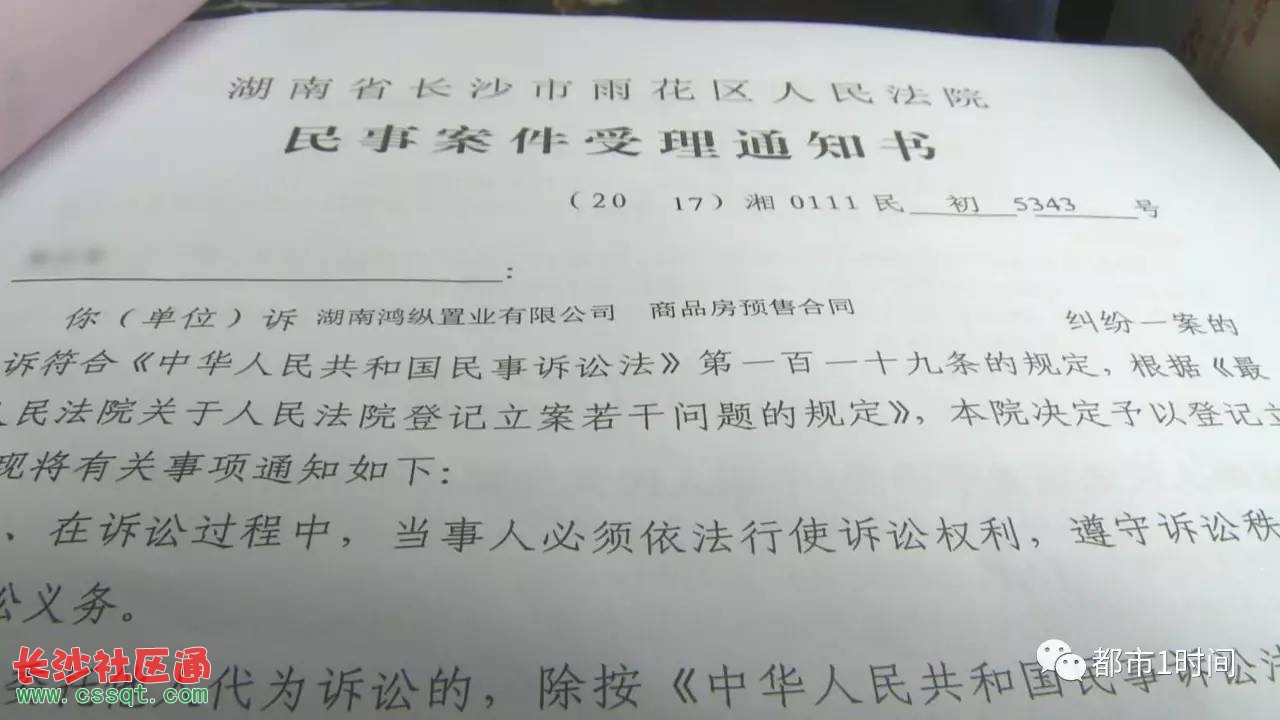 湖南省长沙市雨花区人民法院
民事案件受理通知书
（20 17）湘 0111 民 初 5343 号
：
你（单位）诉 湖南鸿纵置业有限公司 商品房预售合同 纠纷一案的
诉符合《中华人民共和国民事诉讼法》第一百一十九条的规定，根据《最
人民法院关于人民法院登记立案若干问题的规定》，本院决定予以登记立
现将有关事项通知如下：
、在诉讼过程中，当事人必须依法行使诉讼权利，遵守诉讼秩
讼义务。
代为诉讼的，除按《中华人民共和国民事诉讼法
长沙社区通
www.cssqt.com
都市1时间